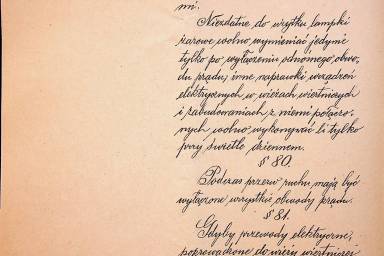 mi.
Niezdatne do użytku lampki
żarowe wolno wymieniać jedynie
tylko po wyłączeniu odnośnego obwo-
du prądu; inne naprawki urządzeń
elektrycznych w wieżach wiertniczych
i zabudowaniach z niemi połączo-
nych wolno wykonywać li tylko
przy świetle dziennem.
§ 80.
Podczas przerw ruchu mają być
wyłączone wszystkie obwody prądu.
§ 81.
Gdyby przewody elektryczne,
poprowadzone do wieży wiertniczej